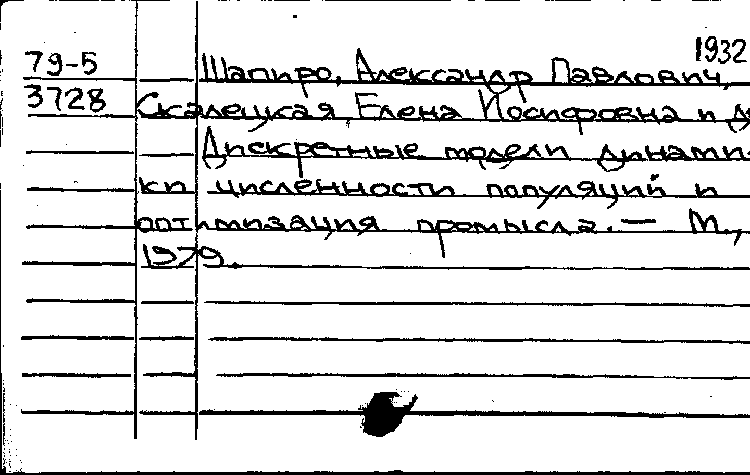 1932
79-5 Шапиро, Александр Павлович,
3728 Скалецкая, Елена Иосифовна и д
Дискретные модели динами-
ки численности популяций и
оптимизация промысла. — М.,
1979.